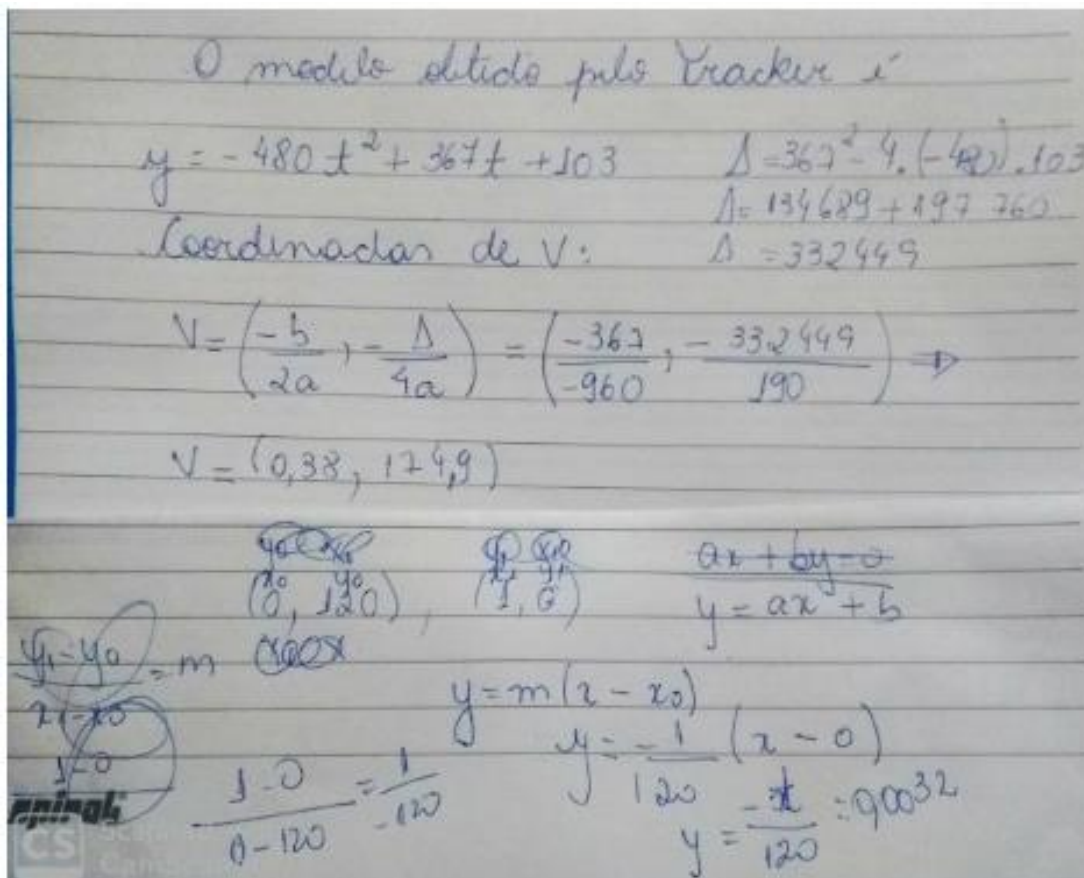 O modelo obtido pelo Tracker é
y = -480 t² + 367t + 103
Δ = 367² - 4.(-480).103
Δ = 134689 + 197 760
Coordenadas de V:
Δ = 332449
V = (-b/2a, -Δ/4a) = (-367/-960, -332449/190) ⇒
V = (0,38, 174,9)
x0 y0
(0, 120), (1, 0)
x1 y1
ax + by = 0
y = ax + b
y1 - y0 / x1 - x0 = m
y = m(x - x0)
1 - 0
1 - 0 / 0 - 120 = 1 / -120
y = -1/120 (x - 0)
y = -x/120 =
CS